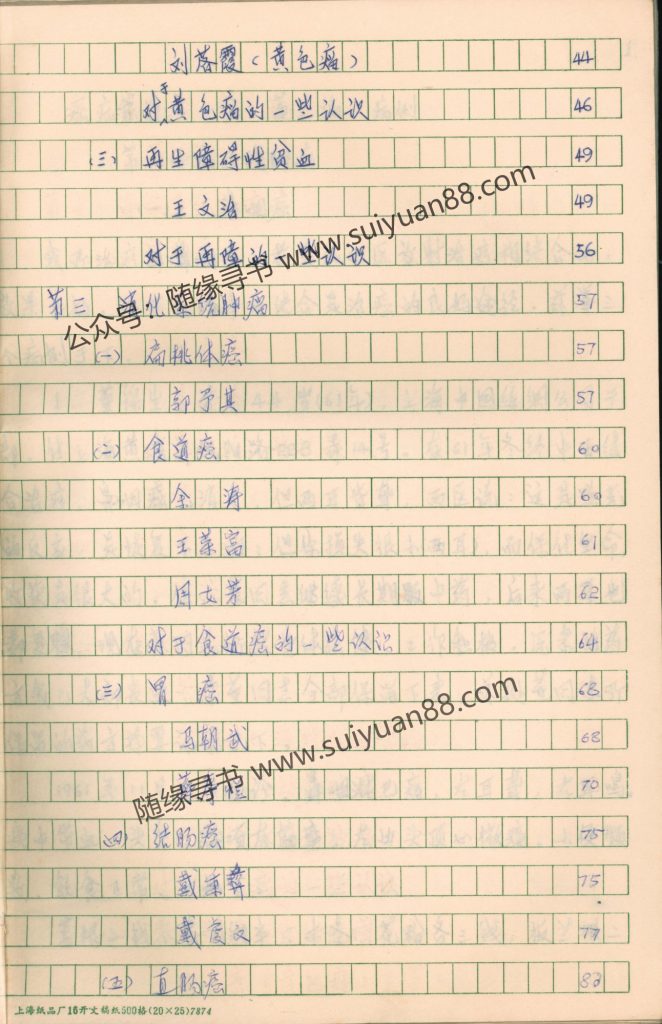 刘蓉霞(黄色瘤) 44
对于黄色瘤的一些认识 46
(三) 再生障碍性贫血 49
王文治 49
对于再障的一些认识 56
第三 消化系统肿瘤 57
(一) 扁桃体癌 57
郭予其 57
(二) 食道癌 60
余涛 60
王菜富 61
周文芳 62
对于食道癌的一些认识 64
(三) 胃癌 68
马朝武 68
70
(四) 结肠癌 75
戴彝 75
戴虞文 79
(五) 直肠癌 83
公众号:随缘寻书 www.suiyuan88.com
随缘寻书 www.suiyuan88.com
上海纸品厂16开文稿纸500格(20×25)7874